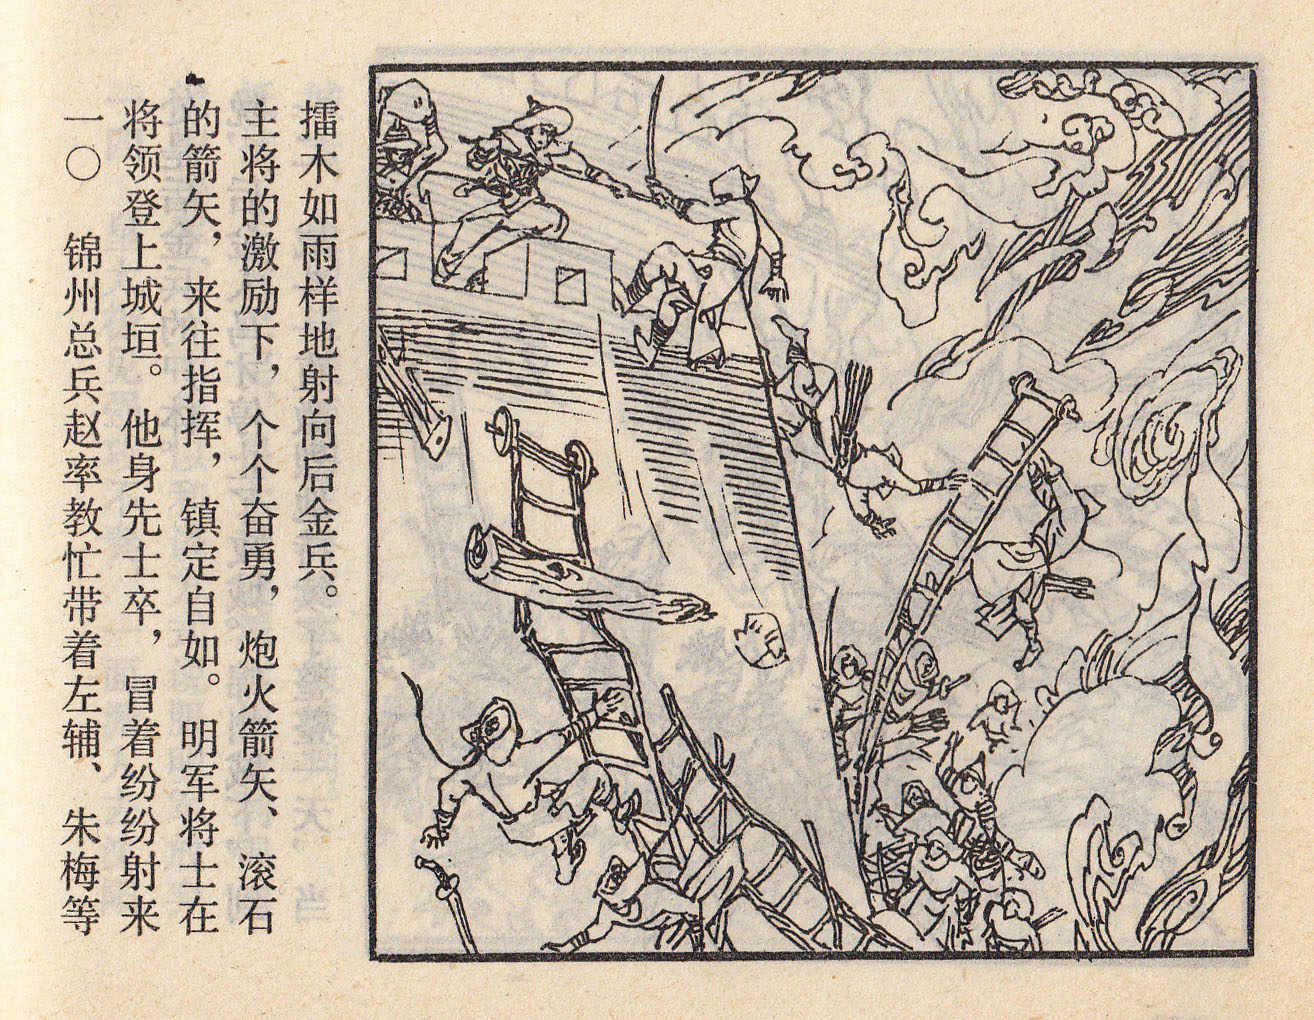 一〇 锦州总兵赵率教忙带着左辅、朱梅等
将领登上城垣。他身先士卒，冒着纷纷射来
的箭矢，来往指挥，镇定自如。明军将士在
主将的激励下，个个奋勇，炮火箭矢、滚石
擂木如雨样地射向后金兵。